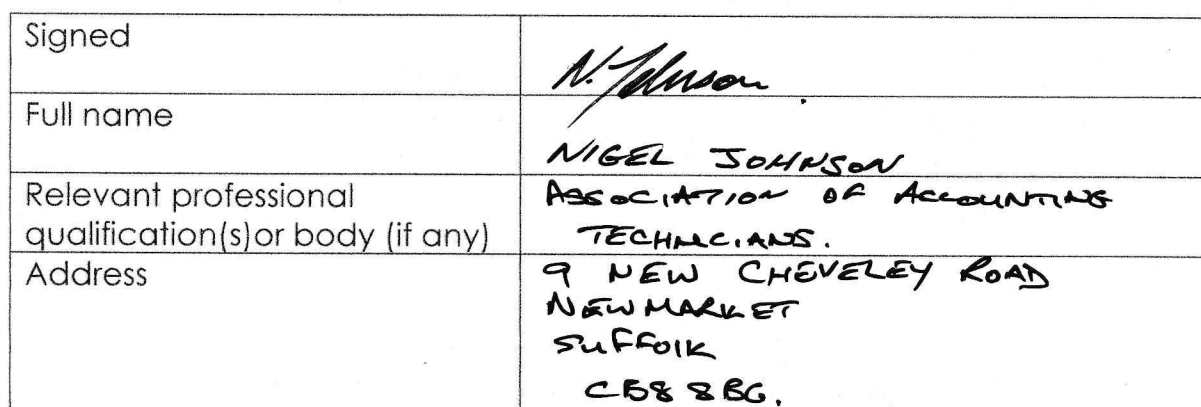 Signed
N. Johnson.
Full name
NIGEL JOHNSON
Relevant professional
qualification(s)or body (if any)
ASSOCIATION OF ACCOUNTING
TECHNICIANS.
Address
9 NEW CHEVELEY ROAD
NEWMARKET
SUFFOLK
CB8 8BG.